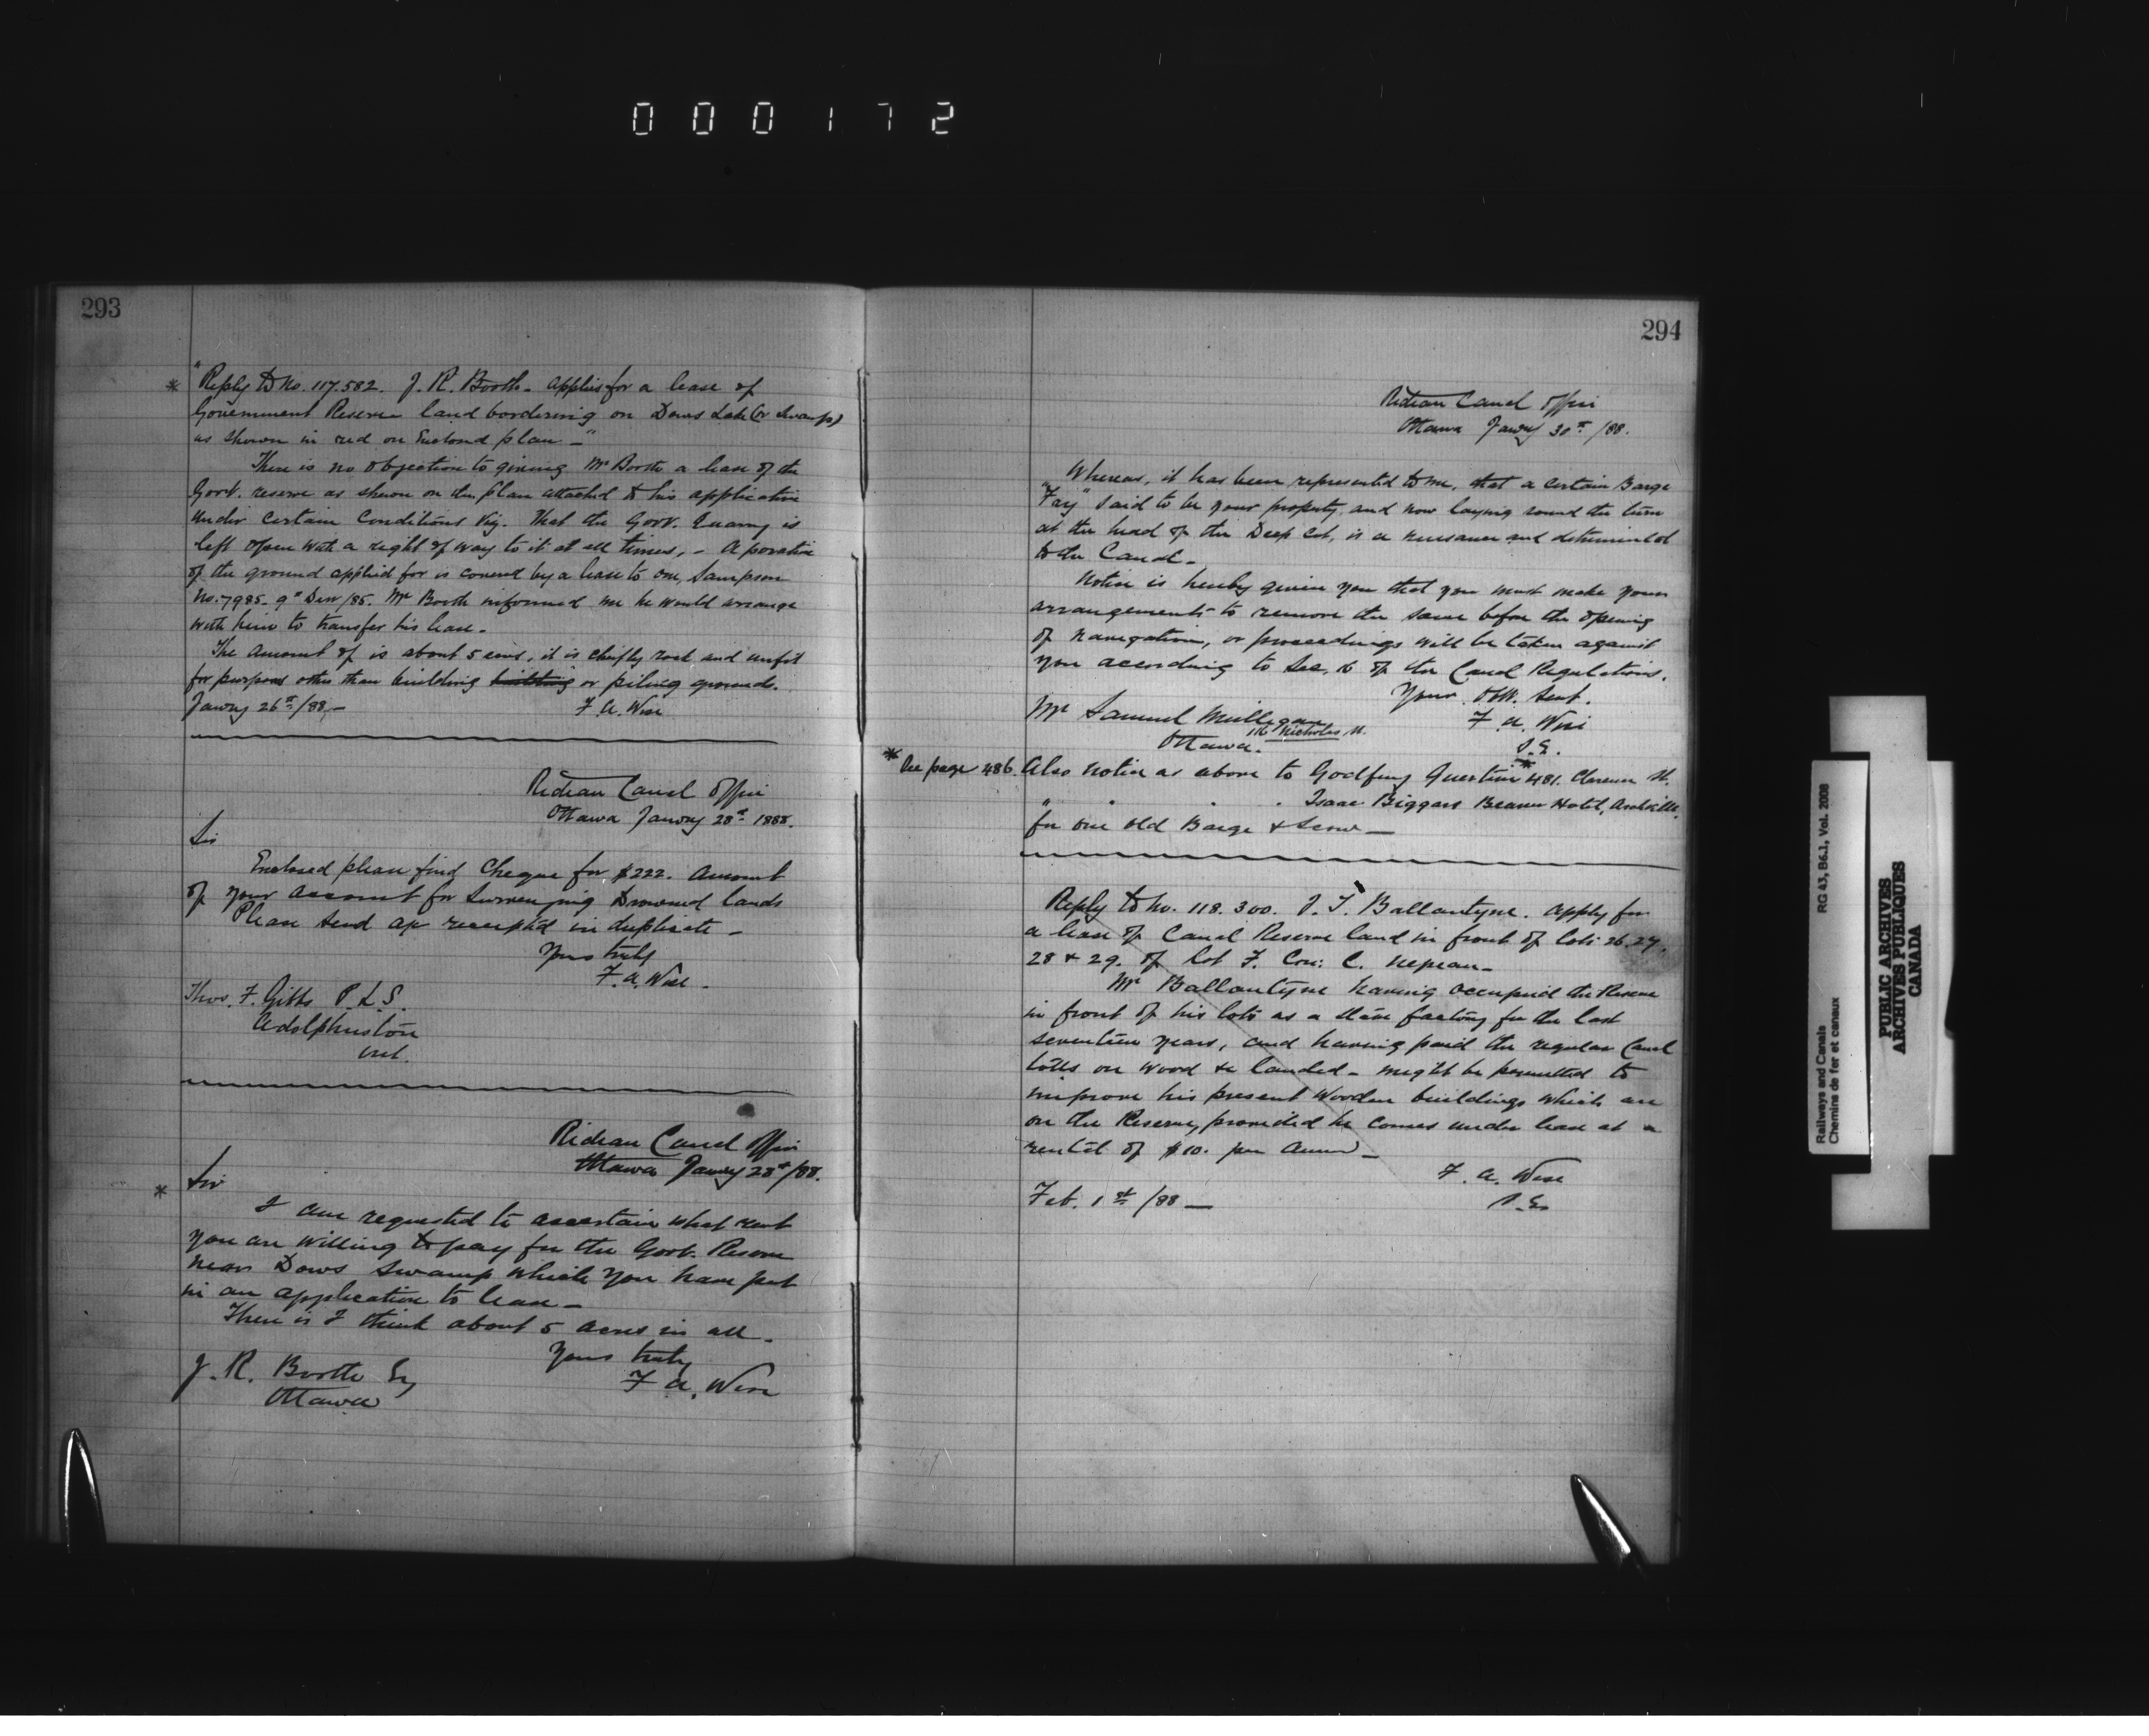 000172
293
* "Reply to No. 117.582. J. R. Booth - applies for a lease of
Government Reserve land bordering on Dows Lake (or Swamp)
as shown in red on Enclosed plan -"
There is no objection to giving Mr Booth a lease of the
Govt. reserve as shewn on the plan attached to his application
under certain conditions viz. That the Govt. Quarry is
left open with a right of way to it at all times, - A portion
of the ground applied for is covered by a lease to one, Sampson
No. 7985 - 9th Decr /85. Mr Booth informed me he would arrange
with him to transfer his lease.
The amount of is about 5 acres, it is chiefly rock and unfit
for purposes other than building building or piling grounds.
Janury 26th /88 -
F. A. Wise
Rideau Canal Office
Ottawa Janury 28th 1888.
Sir
Enclosed please find Cheque for $222. Amount
of your account for Surveying Drowned lands
Please send a/c receipt'd in duplicate -
Yours truly
F. A. Wise.
Thos. F. Gibbs P.L.S.
Adolphuston
Ont.
Rideau Canal Office
Ottawa Janury 28th /88.
Sir
* I am requested to ascertain what rent
you are willing to pay for the Govt. Reserve
near Dows Swamp which you have put
in an application to lease -
There is I think about 5 acres in all.
Yours truly
J. R. Booth Esq
F. A. Wise
Ottawa
294
Rideau Canal Office
Ottawa Janury 30th /88.
Whereas, it has been represented to me, that a certain Barge
"Fay" said to be your property, and now laying round the turn
at the head of the Deep Cut, is a nuisance and detrimental
to the Canal -
Notice is hereby given you that you must make your
arrangements to remove the same before the opening
of navigation, or proceedings will be taken against
you according to Sec. 16 of the Canal Regulations.
Your Obt. Sert.
Mr Samuel Milligan
F. A. Wise
116 Nicholas St.
Ottawa.
S.E.
* See page 486. Also notice as above to Godfrey 481. Clarence St.
" " " " Isaac Biggars Beaver Hotel, Archville.
for one old Barge & Scow -
Reply to No. 118.300. J. T. Ballantyne. Apply for
a lease of Canal Reserve land in front of Lots 26.27.
28 & 29. of Lot F. Con: C. Nepean -
Mr Ballantyne having occupied the Reserve
in front of his lots as a factory for the last
seventeen years, and having paid the regular Canal
tolls on wood &c landed - might be permitted to
improve his present wooden buildings which are
on the Reserve, provided he comes under lease at a
rental of $10. per Annum -
F. A. Wise
Feb. 1st /88 -
S.E.
Railways and Canals
Chemins de fer et canaux
RG 43, B6.1, Vol. 2008
PUBLIC ARCHIVES
ARCHIVES PUBLIQUES
CANADA